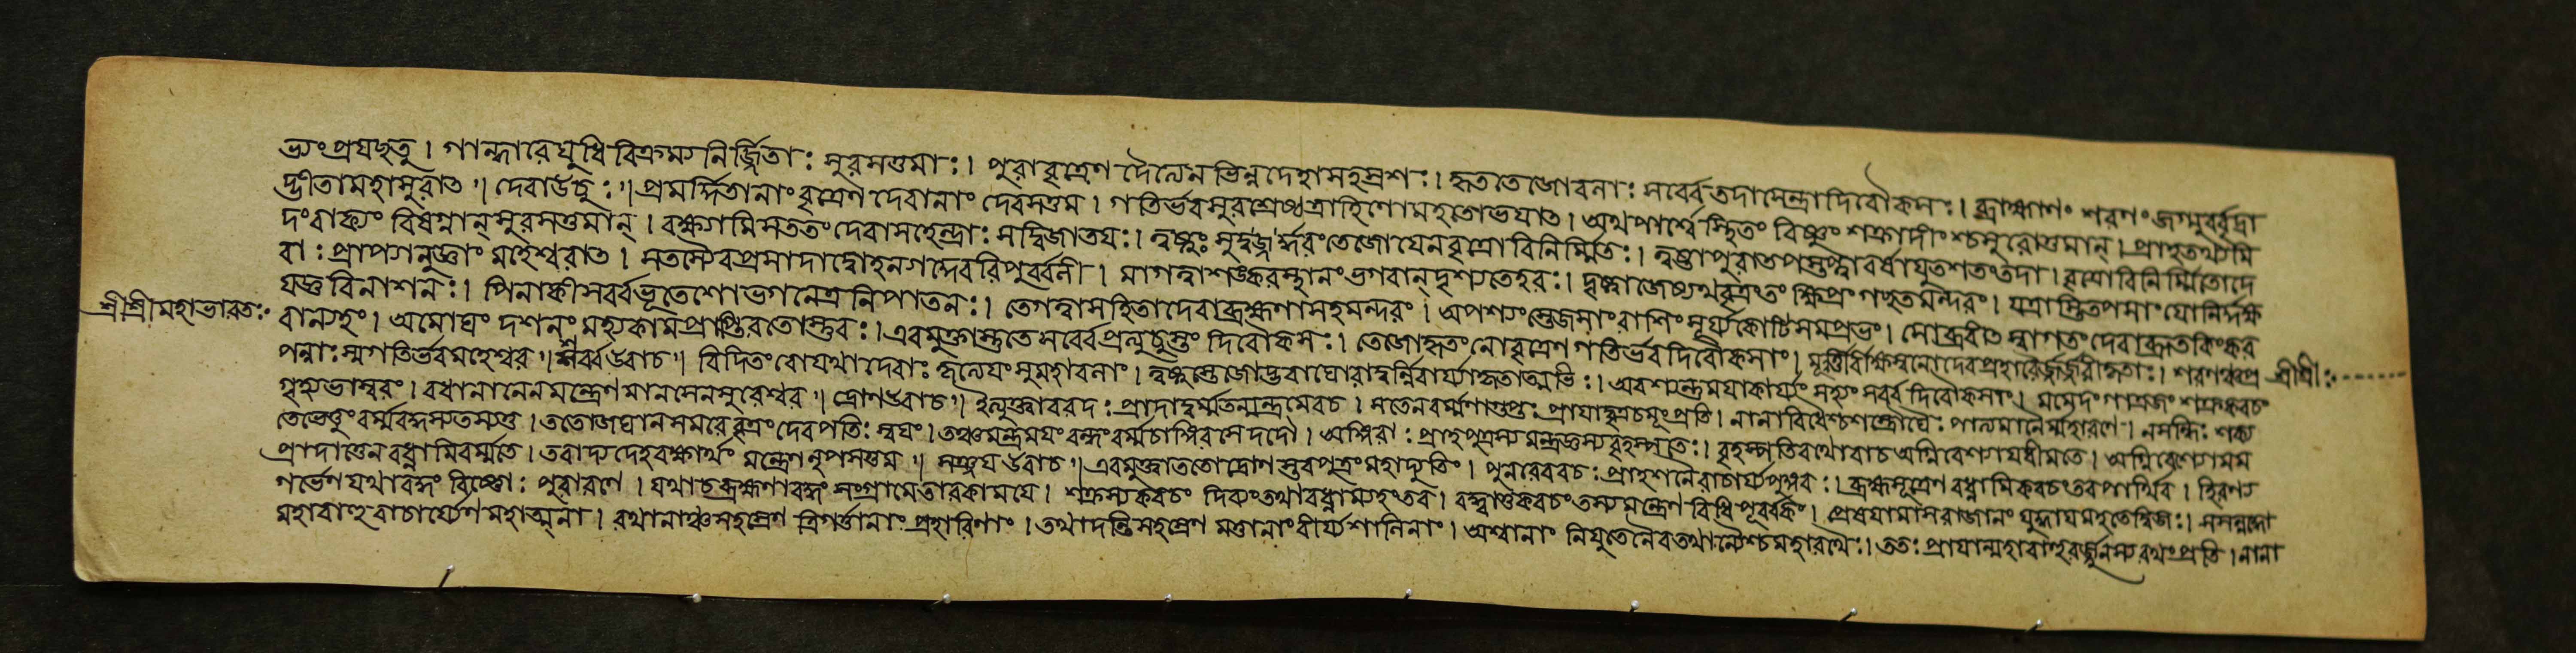 ভ্যং প্রযচ্ছতু । গান্ধারে যুধি বিক্রম্য নির্জ্জিতাঃ সুরসত্তমাঃ । পুরা বৃত্রেণ দৈত্যেন ভিন্নদেহা সহস্রশঃ । হৃততেজোবলাঃ সর্ব্বে তদা সেন্দ্রা দিবৌকসঃ । ব্রহ্মাণং শরণং জগ্মুর্ব্বৃত্রা
দ্ভীতা মহাসুরাত ॥ দেবা উচুঃ ॥ প্রমর্দ্দিতানাং বৃত্রেণ দেবানাং দেবসত্তম । গতির্ভব সুরশ্রেষ্ঠ ত্রাহিণো মহতো ভয়াত । অথ পার্শ্বে স্থিতং বিষ্ণুং শক্রাদীংশ্চ সুরোত্তমান্ । প্রাহ তথ্যমি
দং বাক্যং বিষণ্ণান্ সুরসত্তমান্ । রক্ষ্যামি সততং দেবা সহেন্দ্রাঃ সদ্বিজাতয়ঃ । ত্বষ্টুঃ সুদুর্দ্ধরং তেজো যেন বৃত্রো বিনির্ম্মিতঃ । ত্বষ্টা পুরা তপস্তপ্ত্বা বর্ষাযুতশতং তদা । বৃত্রো বিনির্ম্মিতো দে
বাঃ প্রাপ্যনুজ্ঞাং মহেশ্বরাত । স তস্যৈব প্রসাদাদ্বো হন্যাদেব রিপুর্ব্বলী । মাগত্বা শঙ্করস্থানং ভগবান্ দৃশ্যতে হরঃ । দৃষ্ট্বা জেষ্যথ বৃত্রং তং ক্ষিপ্রং গচ্ছত মন্দরং । যত্রাস্তে তপসাং যোনির্দক্ষ
যজ্ঞবিনাশনঃ । পিনাকী সর্ব্বভূতেশো ভগনেত্রনিপাতনঃ । তে গত্বা সহিতা দেবা ব্রহ্মণা সহ মন্দরং । অপশ্যংস্তেজসাং রাশিং সূর্য্যকোটিসমপ্রভং । সোব্রবীত স্বাগতং দেবা ব্রূত কিং কর
শ্রীশ্রীমহাভারতঃ
বাণ্যহং । অমোঘং দর্শনং মহ্যং কামপ্রাপ্তিরতোস্তু বঃ । এবমুক্তাস্তু তে সর্ব্বে প্রত্যুচুস্তং দিবৌকসঃ । তেজো হৃতং নো বৃত্রেণ গতির্ভব দিবৌকসাং । মূর্ত্তীর্বীক্ষস্ব নো দেব প্রহারৈর্জর্জরীকৃতাঃ । শরণং ত্বাং প্র
শ্রীশ্রীঃ
পন্নাঃ স্ম গতির্ভব মহেশ্বর ॥ শর্ব্ব উবাচ ॥ বিদিতং বো যথা দেবাঃ কৃত্যেয়ং সুমহাবলা । ত্বষ্টুস্তেজোদ্ভবা ঘোরা দুর্ন্নিবার্য্যাকৃতাত্মভিঃ । অবশ্যন্তু ময়া কার্য্যং সহ্যং সর্ব্বদিবৌকসাং । মমেদং গাত্রজং শক্র কবচং
গৃহ্য ভাস্বরং । বধানানেন মন্ত্রেণ মানসেন সুরেশ্বর ॥ দ্রোণ উবাচ ॥ ইত্যুক্ত্বা বরদঃ প্রাদাদ্বর্ম্ম তন্মন্ত্রমেব চ । স তেন বর্ম্মণা গুপ্তঃ প্রায়াদ্বৃত্রচমূং প্রতি । নানাবিধৈশ্চ শস্ত্রৌঘৈঃ পাত্যমানৈর্ম্মহারণে । ন সন্ধিঃ শক্য
তে ভেত্তুং বর্ম্মবন্ধস্য তস্য তু । ততো জঘান সমরে বৃত্রং দেবপতিঃ স্বয়ং । তঞ্চ মন্ত্রময়ং বন্ধং বর্ম্ম চাঙ্গিরসে দদৌ । অঙ্গিরাঃ প্রাহ পুত্রস্য মন্ত্রজ্ঞস্য বৃহস্পতেঃ । বৃহস্পতিরথোবাচ অগ্নিবেশ্যায় ধীমতে । অগ্নিবেশ্যো মম
প্রাদাত্তেন বধ্নামি বর্ম্ম তে । তবাদ্য দেহরক্ষার্থং মন্ত্রেণ নৃপসত্তম ॥ সঞ্জয় উবাচ ॥ এবমুক্ত্বা ততো দ্রোণস্তব পুত্রং মহাদ্যুতিং । পুনরেব বচঃ প্রাহ শনৈরাচার্য্যপুঙ্গবঃ । ব্রহ্মসূত্রেণ বধ্নামি কবচং তব পার্থিব । হিরণ্য
গর্ভেণ যথা বন্ধং বিষ্ণোঃ পুরা রণে । যথা চ ব্রহ্মণা বন্ধং সংগ্রামে তারকাময়ে । শক্রস্য কবচং দিব্যং তথা বধ্নাম্যহং তব । বদ্ধ্বা তু কবচং তস্য মন্ত্রেণ বিধিপূর্ব্বকং । প্রেষয়ামাস রাজানং যুদ্ধায় মহতে দ্বিজঃ । স সন্নদ্ধো
মহাবাহুরাচার্য্যেণ মহাত্মনা । রথানাঞ্চ সহস্রেণ ত্রিগর্ত্তানাং প্রহারিণাং । তথা দন্তিসহস্রেণ মত্তানাং বীর্য্যশালিনাং । অশ্বানাং নিযুতেনৈব তথান্যৈশ্চ মহারথৈঃ । ততঃ প্রায়ান্মহাবাহুরর্জ্জুনস্য রথং প্রতি । নানা